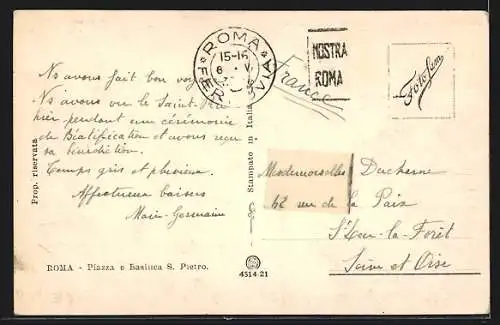 ROMA FERROVIA
15-16
6 . V
NOSTRA
ROMA
France
Foto
Ns avons fait bon voyage
Ns avons vu le Saint-Père
hier pendant une cérémonie
de Béatification et avons reçu
sa bénédiction.
Temps gris et pluvieux.
Affectueux baisers
Marie-Germaine
Prop. riservata
Stampato in Italia
Mesdemoiselles Duchesne
42 rue de la Paix
St Leu-la-Forêt
Seine et Oise
ROMA - Piazza e Basilica S. Pietro.
4514-21